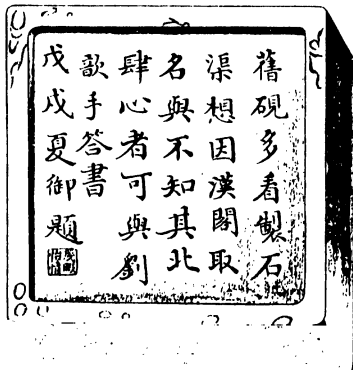 舊硯多看製石
渠想因漢閣取
名與不知其北
肆心者可與劉
歆手答書
戊戌夏御題